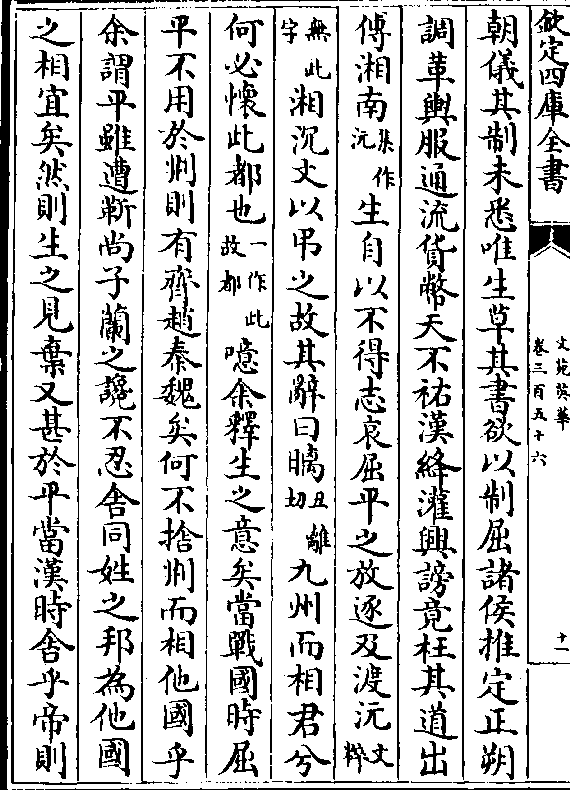 欽定四庫全書
文苑英華
卷三百五十六
十一
朝儀其制未悉唯生草其書欲以制屈諸侯推定正朔
調革輿服通流貨幣天不祐漢絳灌興謗竟枉其道出
傅湘南集作沅生自以不得志哀屈平之放逐及渡沅文粹
無此字湘沉文以弔之故其辭曰瞝丑離切九州而相君兮
何必懷此都也一作此故都噫余釋生之意矣當戰國時屈
平不用於荆則有齊趙秦魏矣何不捨荆而相他國乎
余謂平雖遭靳尚子蘭之讒不忍舍同姓之邦為他國
之相宜矣然則生之見棄又甚於平當漢時舍乎帝則